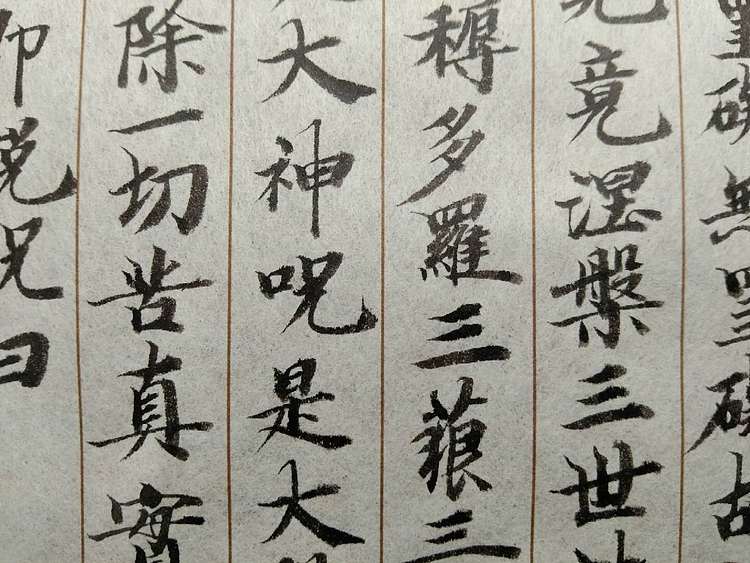 罣礙無罣礙故
究竟涅槃三世
耨多羅三藐三
大神呪是大
除一切苦真實
即說呪曰